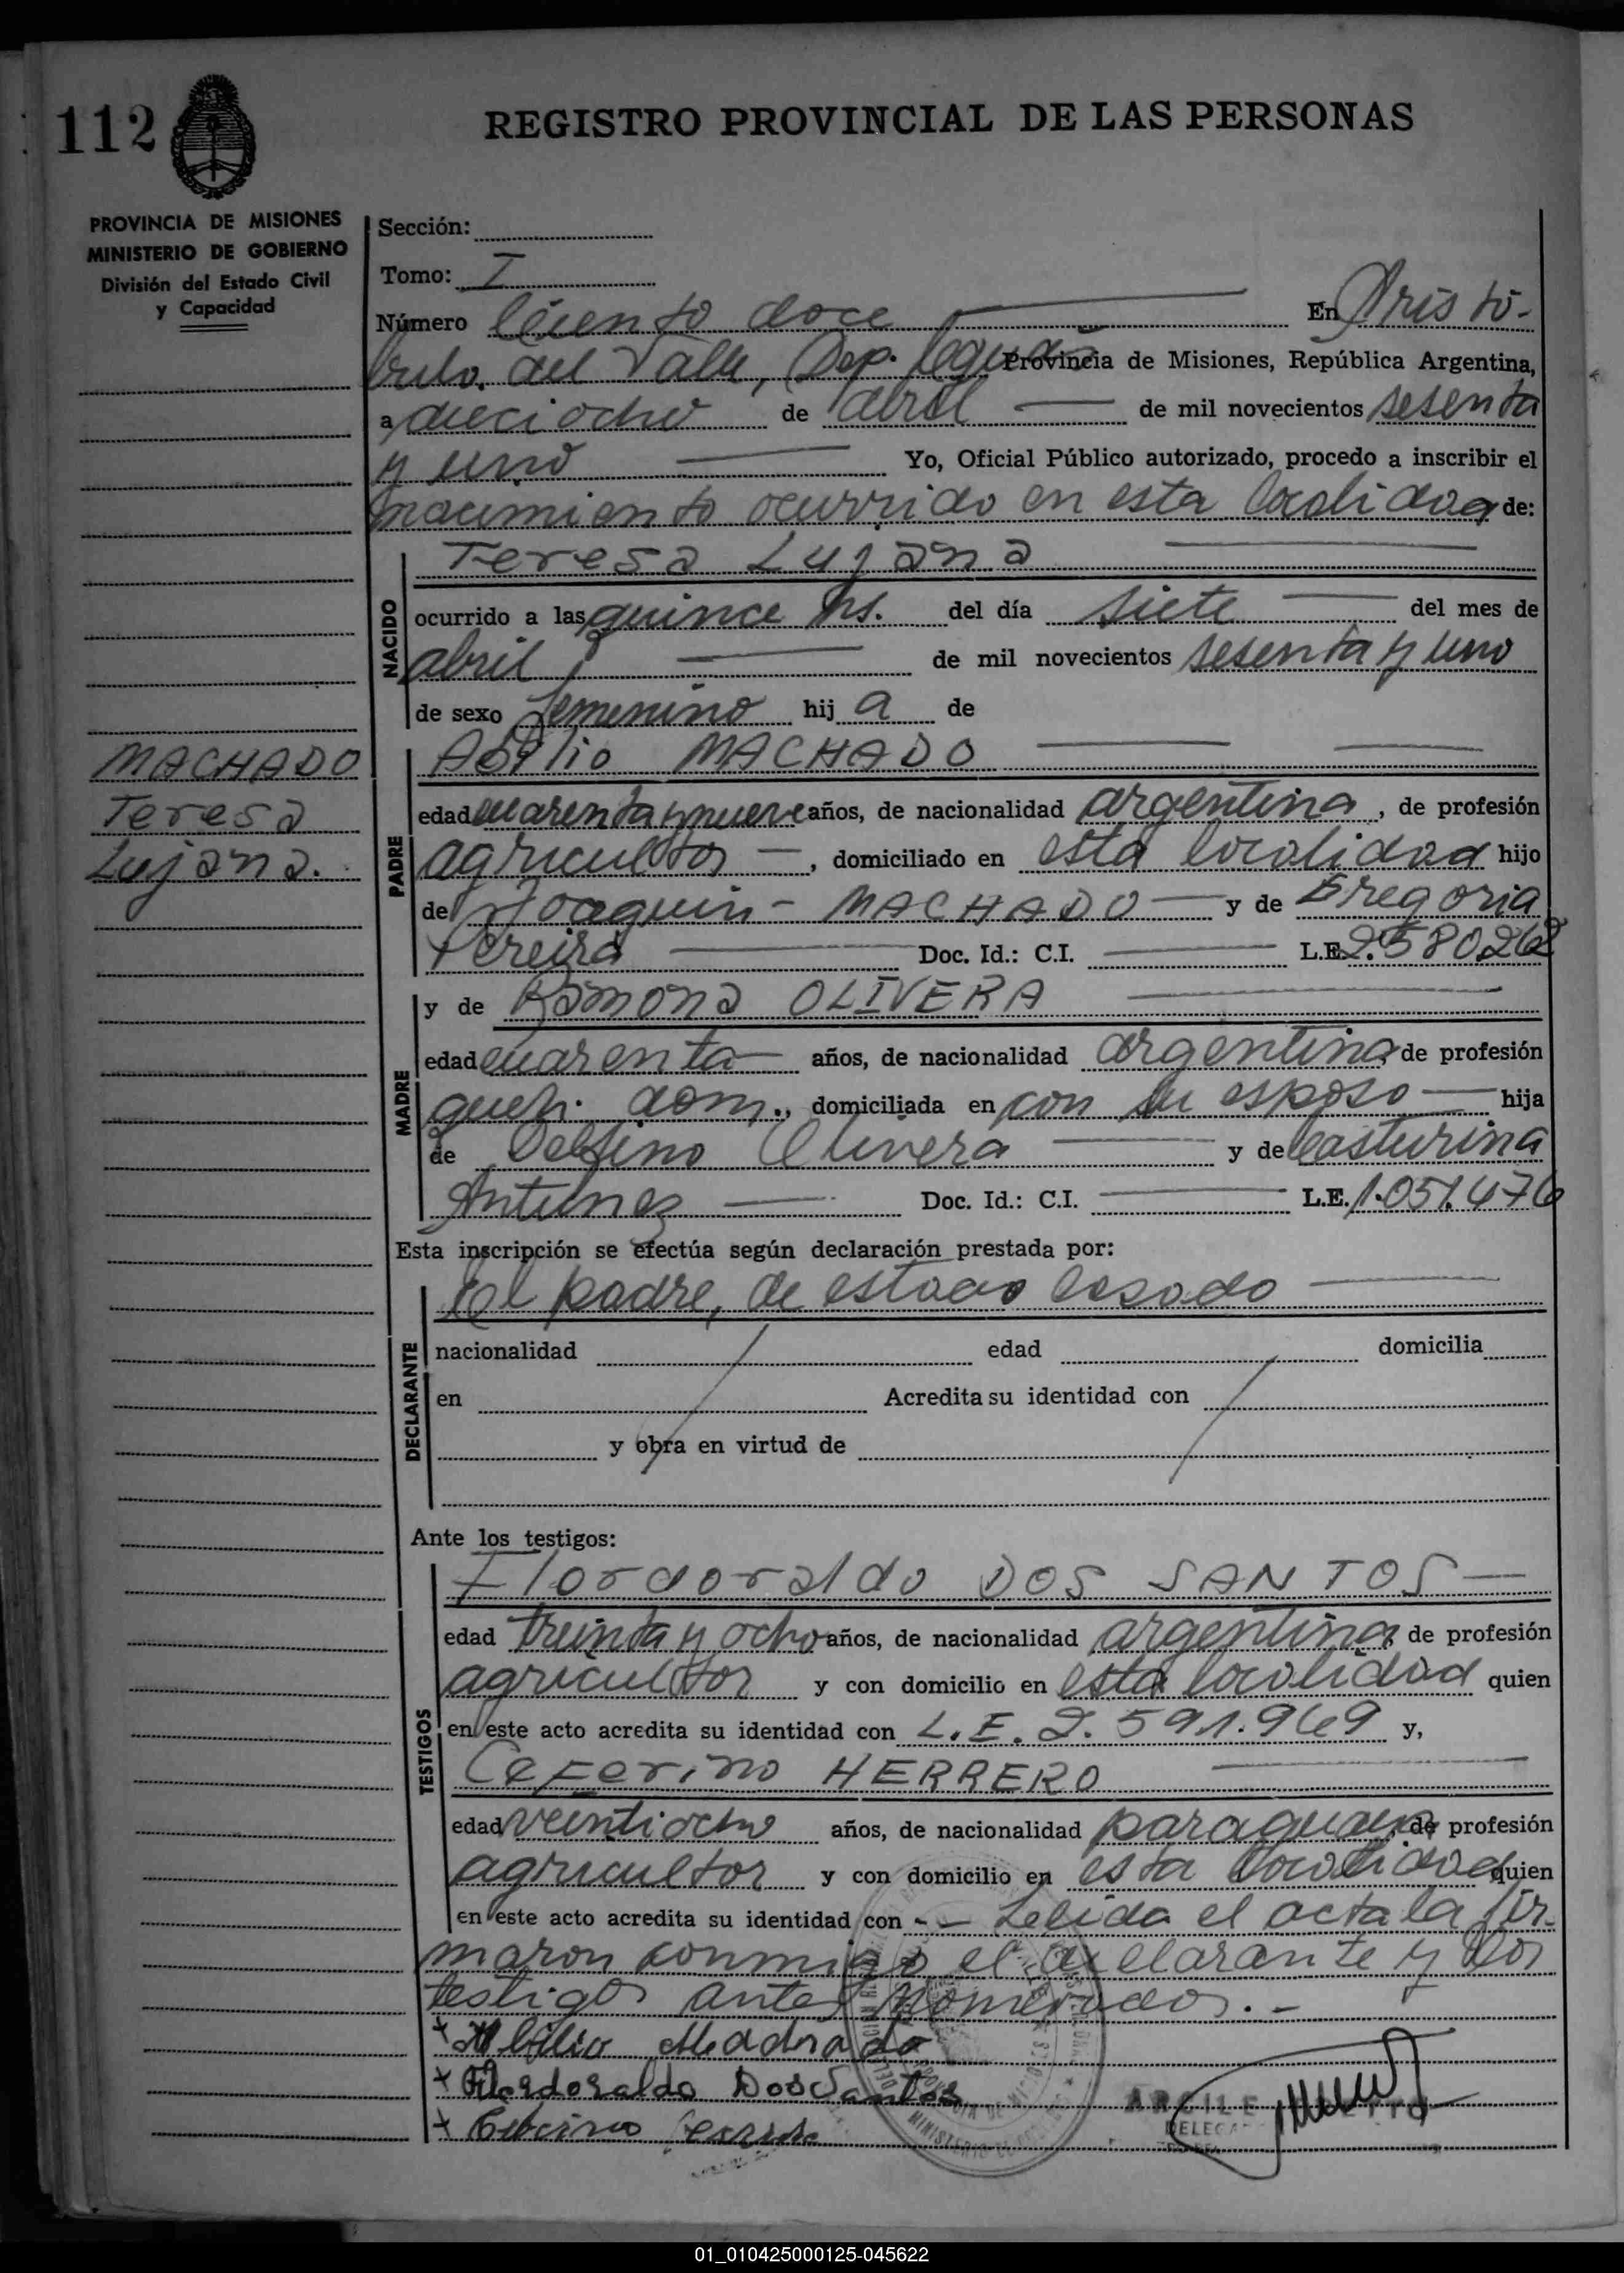 112
REGISTRO PROVINCIAL DE LAS PERSONAS
PROVINCIA DE MISIONES
MINISTERIO DE GOBIERNO
División del Estado Civil
y Capacidad
Sección:
Tomo: I
Número Ciento doce En Aristó-
bulo del Valle, Dep. Caguás Provincia de Misiones, República Argentina,
a dieciocho de abril de mil novecientos sesenta
y uno Yo, Oficial Público autorizado, procedo a inscribir el
nacimiento ocurrido en esta localidad de:
NACIDO
Teresa Lujana
ocurrido a las quince hs. del día siete del mes de
abril de mil novecientos sesenta y uno
de sexo femenino hij a de
MACHADO
Teresa
Lujana.
PADRE
Abilio MACHADO
edad cuarenta y nueve años, de nacionalidad argentina, de profesión
agricultor, domiciliado en esta localidad hijo
de Joaquin MACHADO y de Gregoria
Pereira Doc. Id.: C.I. L.E. 2.580262
MADRE
y de Ramona OLIVERA
edad cuarenta años, de nacionalidad argentina de profesión
queh. dom., domiciliada en con su esposo hija
de Delfino Olivera y de Casturina
Antunez Doc. Id.: C.I. L.E. 1.051.476
Esta inscripción se efectúa según declaración prestada por:
DECLARANTE
El padre, de estado casado
nacionalidad edad domicilia
en Acredita su identidad con
y obra en virtud de
Ante los testigos:
TESTIGOS
Flordoraldo DOS SANTOS
edad treinta y ocho años, de nacionalidad argentina de profesión
agricultor y con domicilio en esta localidad quien
en este acto acredita su identidad con L.E. 2.591.969 y,
Ceferino HERRERO
edad veintiocho años, de nacionalidad paraguaya de profesión
agricultor y con domicilio en esta localidad quien
en este acto acredita su identidad con - - Leída el acta la fir-
maron conmigo el declarante y los
testigos antes nombrados. -
+ Abilio Machado
+ Flordoraldo Dos Santos
+
DELEGA
01_010425000125-045622